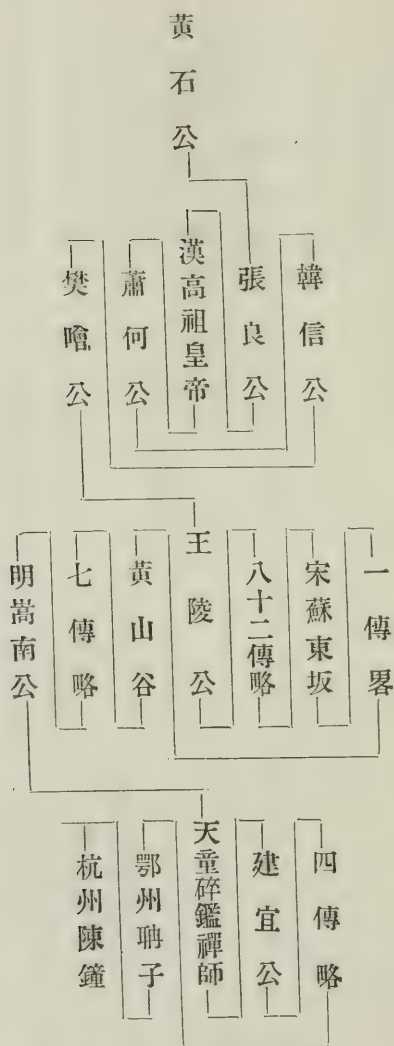 黄石公
韓信公
張良公
漢高祖皇帝
蕭何公
樊噲公
一傳畧
宋蘇東坂
八十二傳略
王陵公
黄山谷
七傳略
明嵩南公
四傳略
建宜公
天童碎鑑禪師
鄂州聃子
杭州陳鐘